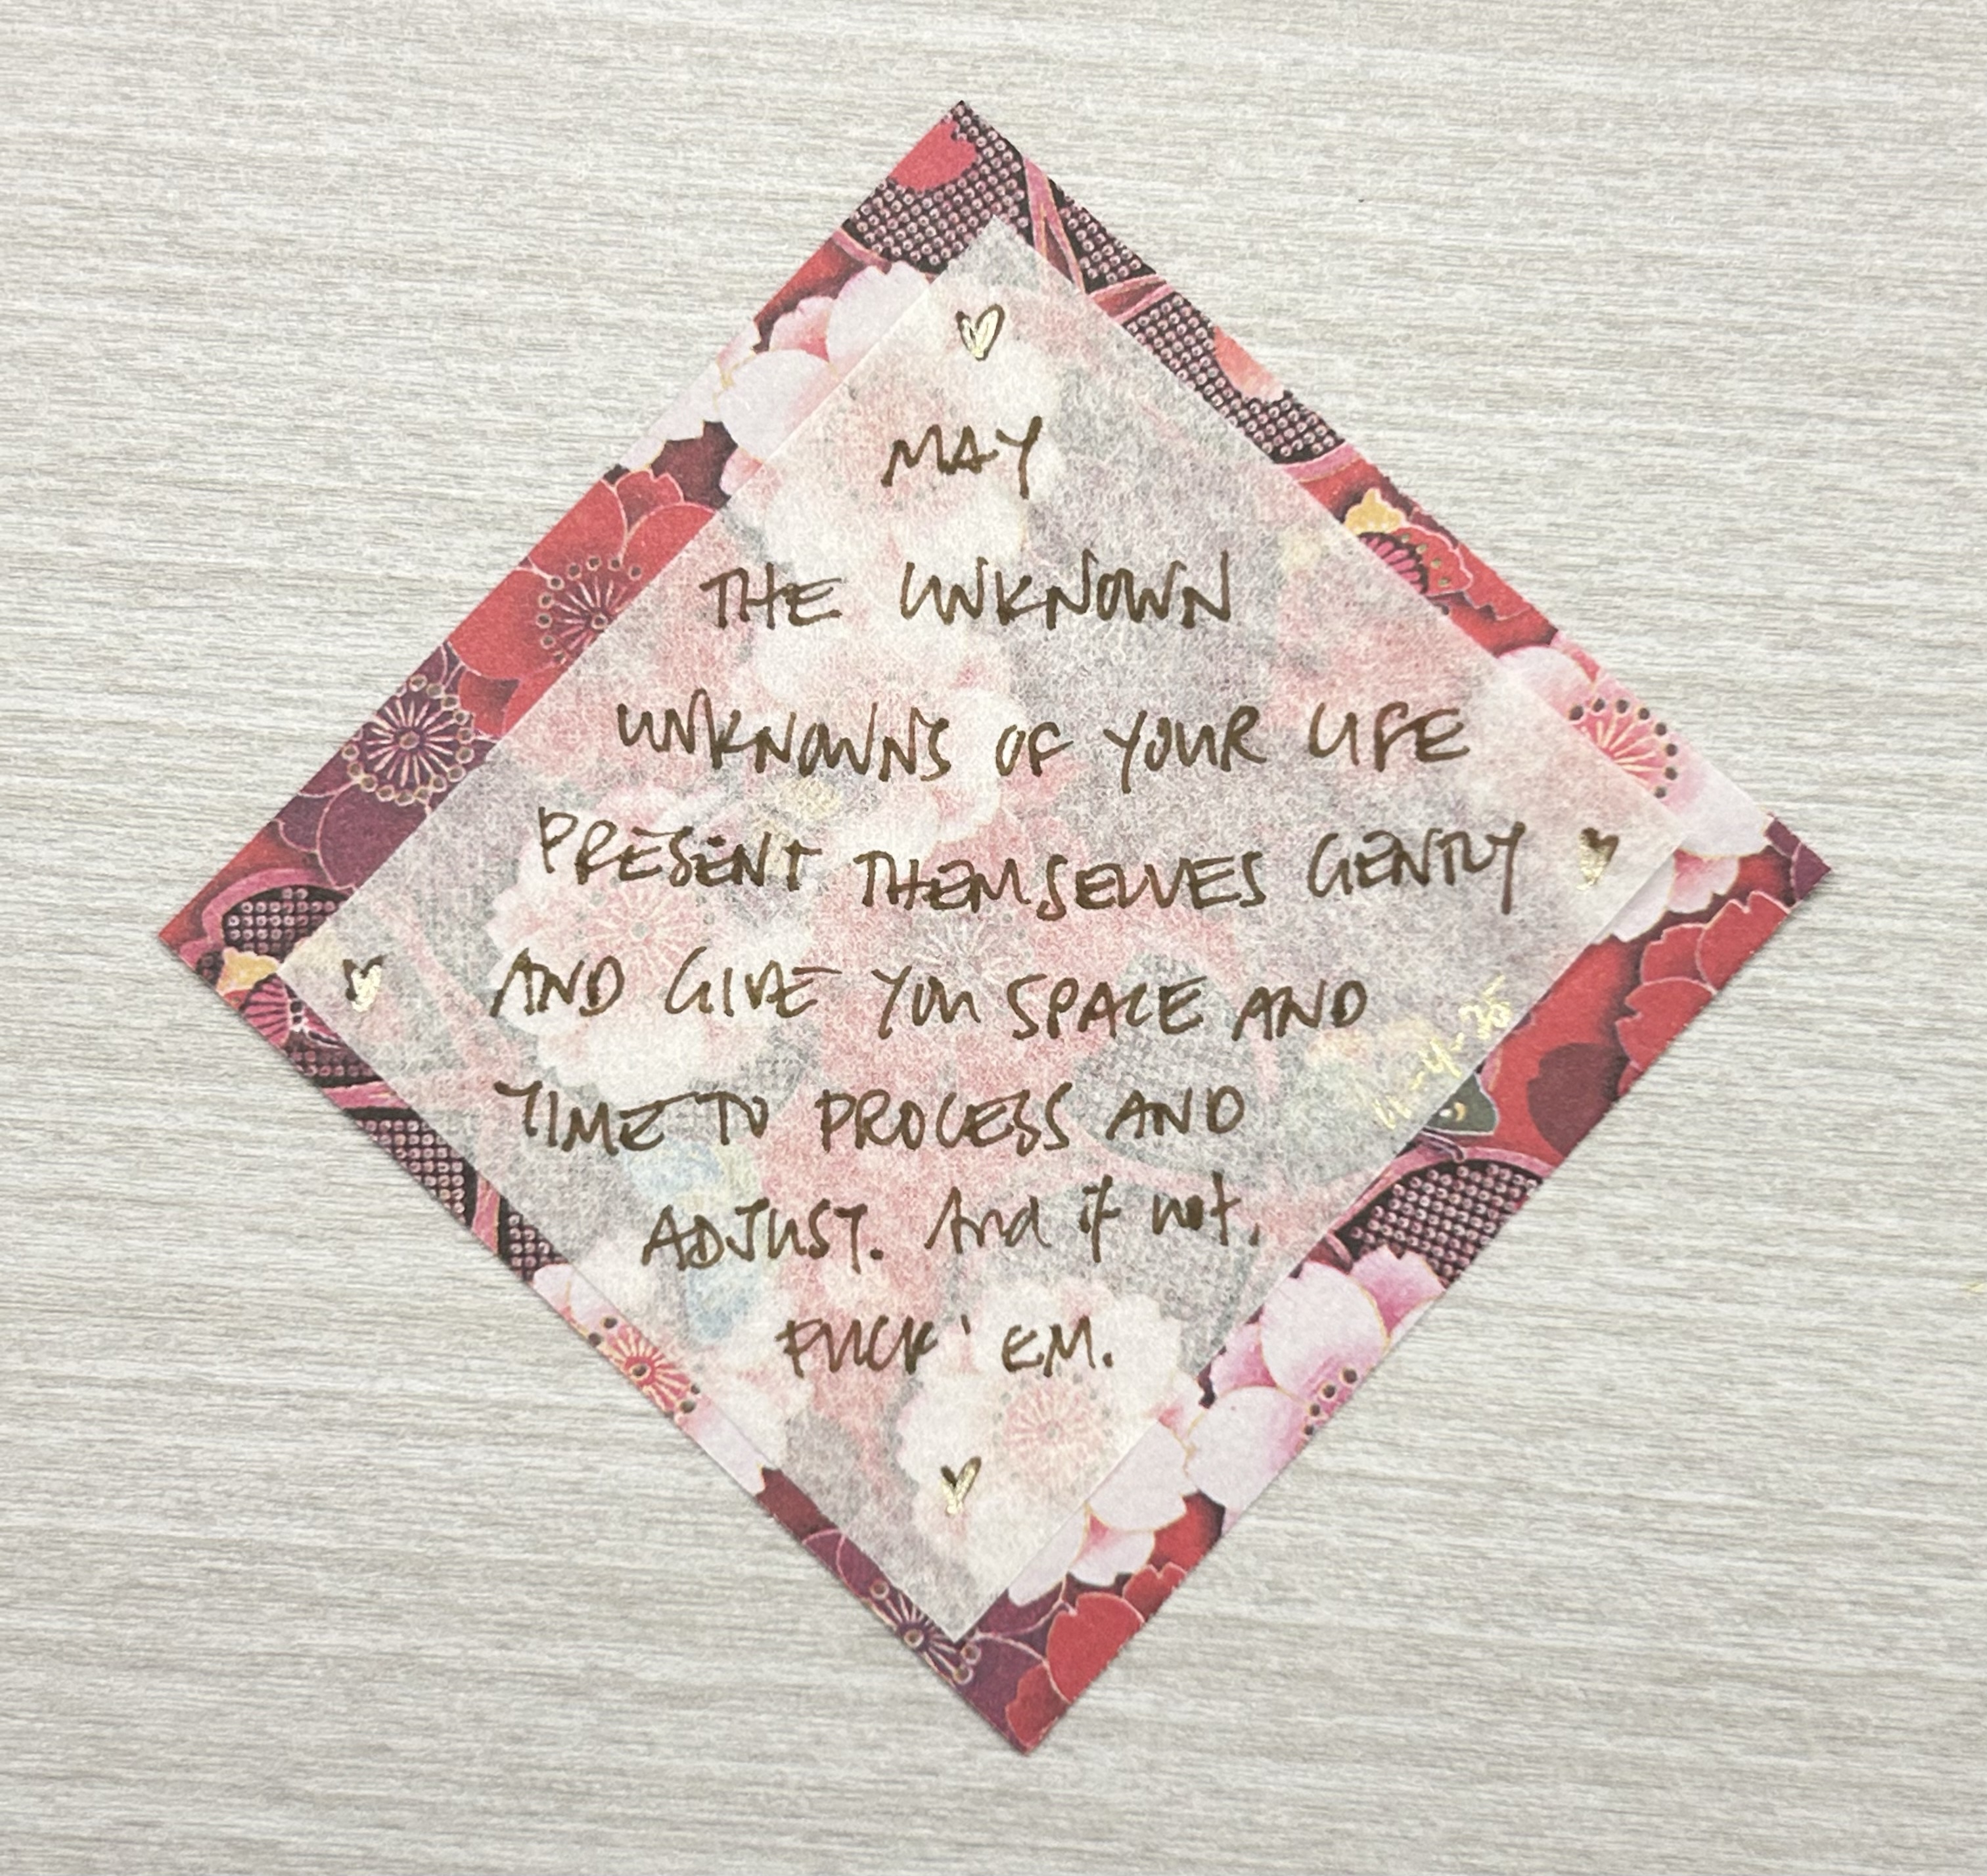 MAY
THE UNKNOWN
UNKNOWNS OF YOUR LIFE
PRESENT THEMSELVES GENTLY
AND GIVE YOU SPACE AND
TIME TO PROCESS AND
ADJUST. And if not,
FUCK 'EM.